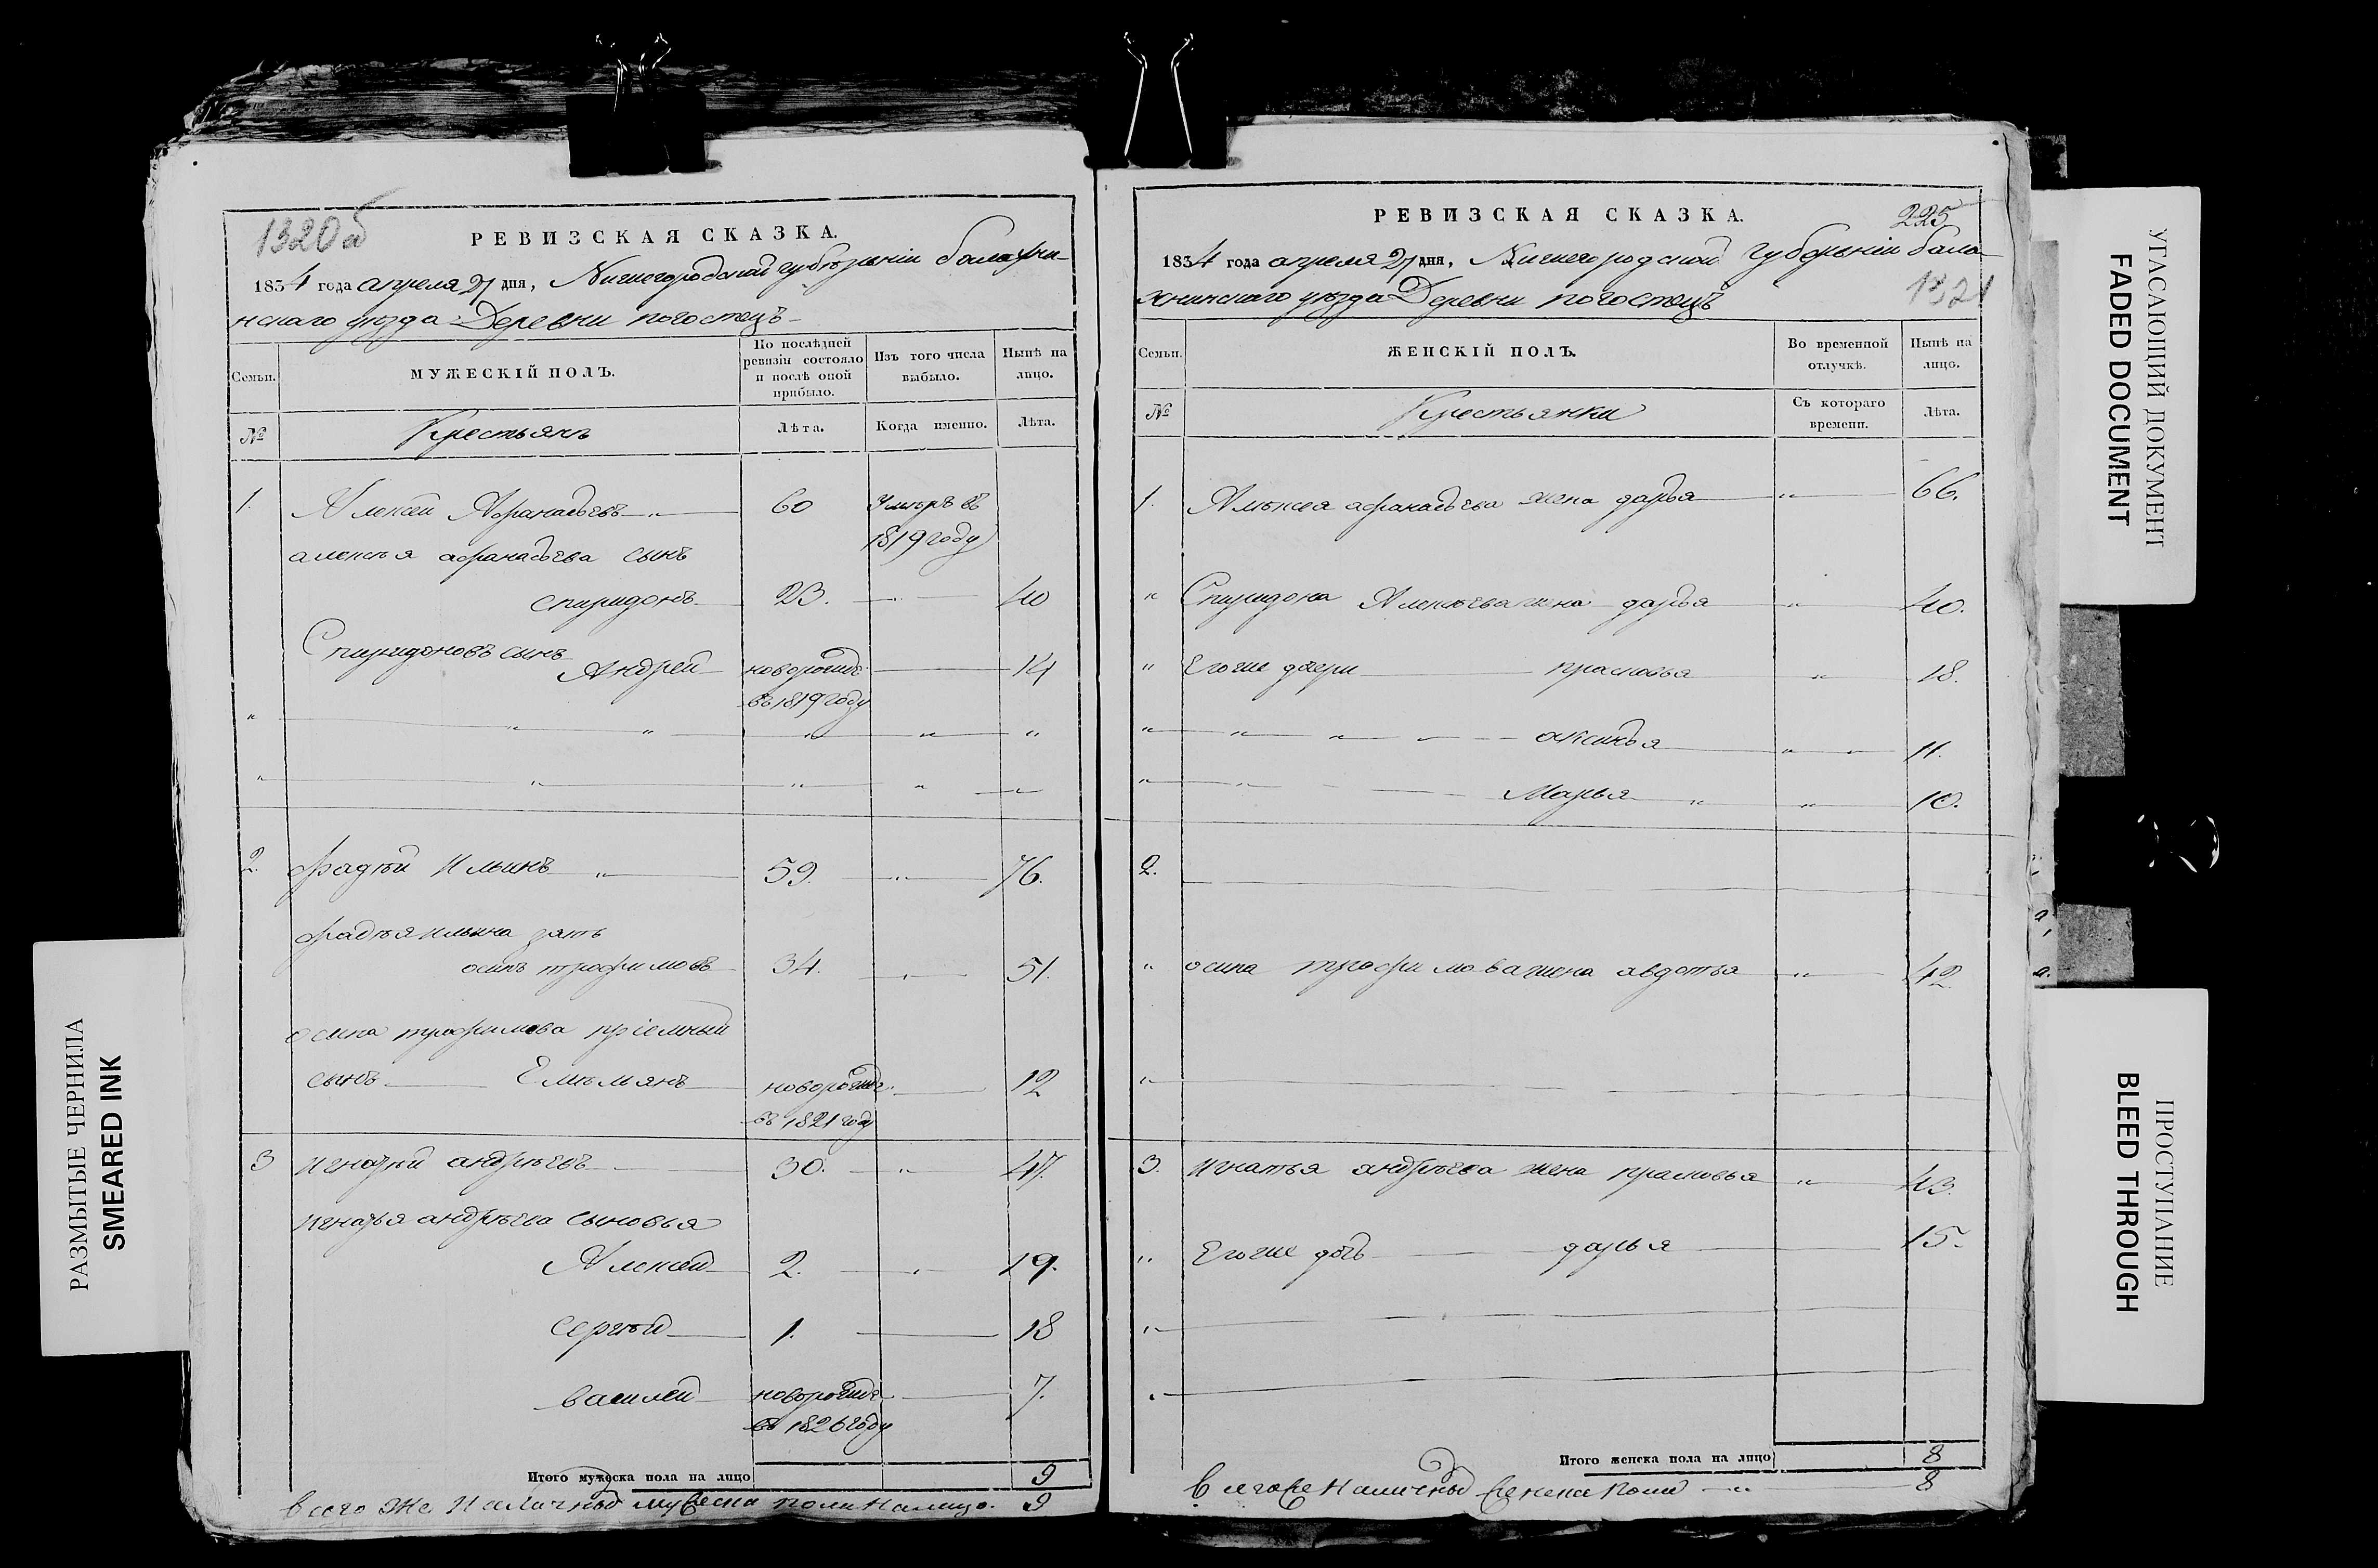 1320об
РЕВИЗСКАЯ СКАЗКА.
1834 года апреля 27 дня, Нижегородской губѣрьніи балахни-
нскаго уѣзда Деревни погостецъ
Семьи. МУЖЕСКІЙ ПОЛЪ. По послѣдней ревизіи состояло и послѣ оной прибыло. Изъ того числа выбыло. Нынѣ на лицо.
№ Крестьянъ Лѣта. Когда именно. Лѣта.
1. Алексей Афанасьевъ 60 Умѣръ въ
1819 году
алексѣя афанасьева сынъ
спиридонъ 23. 40
Спиридоновъ сынъ Андрей новорожде 14
въ 1819 году
2. Фадѣй Ильинъ 59. 76.
Фадѣя ильина зять
осипъ трофимовъ 34. 51.
осипа трофимова пріемный
сынъ Емельянъ новорожде. 12
въ 1821 году
3 игнатий андрѣевъ 30. 47.
игнатья андрѣева сыновья
Алексей 2. 19.
сергѣй 1. 18
василей новорожде 7.
въ 1826 году
Итого мужеска пола на лицо 9
Всего же Наличныхъ мужеска пола налицо. 9
РЕВИЗСКАЯ СКАЗКА. 225
1834 года апреля 27 дня, Нижегородской губерьніи бала-
хнинскаго уѣзда Деревни погостецъ 1321
Семьи. ЖЕНСКІЙ ПОЛЪ. Во временной отлучкѣ. Нынѣ на лицо.
№ Крестьянки Съ котораго времени. Лѣта.
1. Алѣксея афанасьева жена дарья 66.
Спиридона Алексѣева жена дарья 40.
Егоже дочери прасковья 18.
аксинья 11.
Марья 10.
2.
осипа трофимова жена авдотья 42
3. игнатья андрѣева жена прасковья 43.
Егоже дочь дарья 15.
Итого женска пола на лицо 8
Всегоже Наличныхъ женска пола 8
РАЗМЫТЫЕ ЧЕРНИЛА
SMEARED INK
УГАСАЮЩИЙ ДОКУМЕНТ
FADED DOCUMENT
ПРОСТУПАНИЕ
BLEED THROUGH